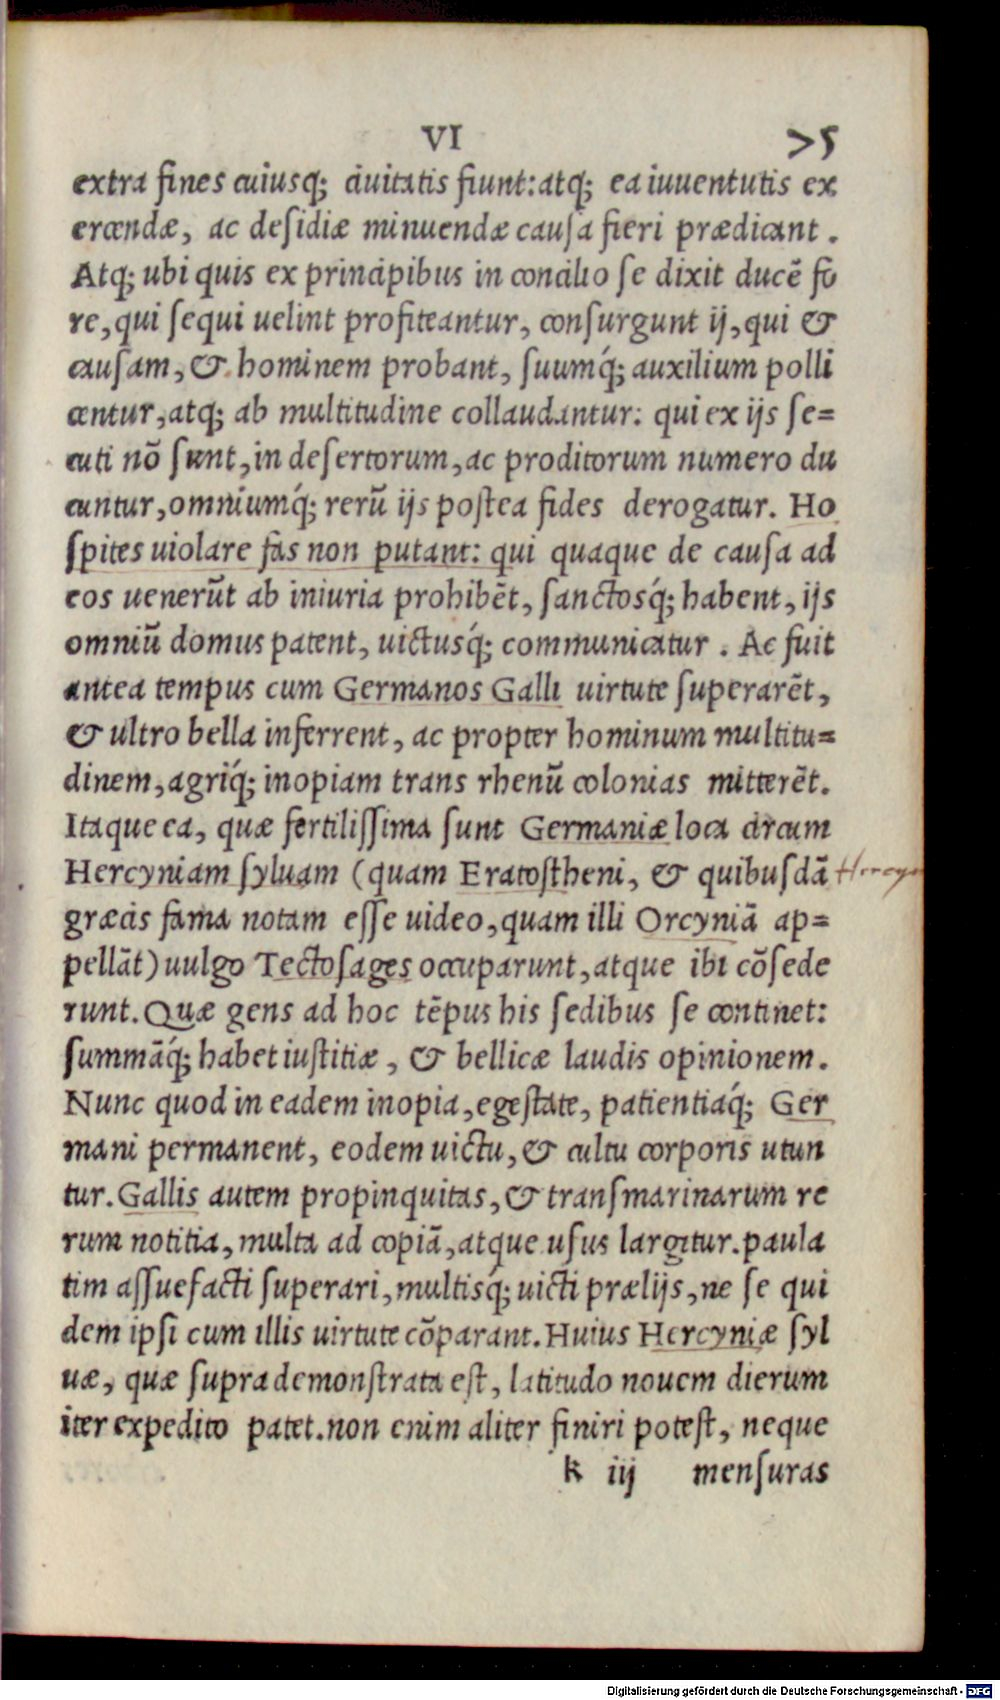 VI 75
extra fines cuiusq; ciuitatis fiunt: atq; ea iuuentutis ex
ercendæ, ac desidiæ minuendæ causa fieri prædicant.
Atq; ubi quis ex principibus in concilio se dixit ducē fo
re, qui sequi uelint profiteantur, consurgunt ij, qui &
causam, & hominem probant, suumq́; auxilium polli
centur, atq; ab multitudine collaudantur: qui ex ijs se=
cuti nō sunt, in desertorum, ac proditorum numero du
cuntur, omniumq́; rerū ijs postea fides derogatur. Ho
spites uiolare fas non putant: qui quaque de causa ad
eos uenerūt ab iniuria prohibēt, sanctosq́; habent, ijs
omniū domus patent, uictusq́; communicatur. Ac fuit
antea tempus cum Germanos Galli uirtute superarēt,
& ultro bella inferrent, ac propter hominum multitu=
dinem, agriq́; inopiam trans rhenū colonias mitterēt.
Itaque ea, quæ fertilissima sunt Germaniæ loca circum
Hercyniam syluam (quam Eratostheni, & quibusdā
græcis fama notam esse uideo, quam illi Orcyniā ap=
pellāt) uulgo Tectosages occuparunt, atque ibi cōsede
runt. Quæ gens ad hoc tēpus his sedibus se continet:
summāq́; habet iustitiæ, & bellicæ laudis opinionem.
Nunc quod in eadem inopia, egestate, patientiaq́; Ger
mani permanent, eodem uictu, & cultu corporis utun
tur. Gallis autem propinquitas, & transmarinarum re
rum notitia, multa ad copiā, atque usus largitur. paula
tim assuefacti superari, multisq́; uicti prælijs, ne se qui
dem ipsi cum illis uirtute cōparant. Huius Hercyniæ syl
uæ, quæ supra demonstrata est, latitudo nouem dierum
iter expedito patet. non enim aliter finiri potest, neque
k iij mensuras
Digitalisierung gefördert durch die Deutsche Forschungsgemeinschaft - DFG